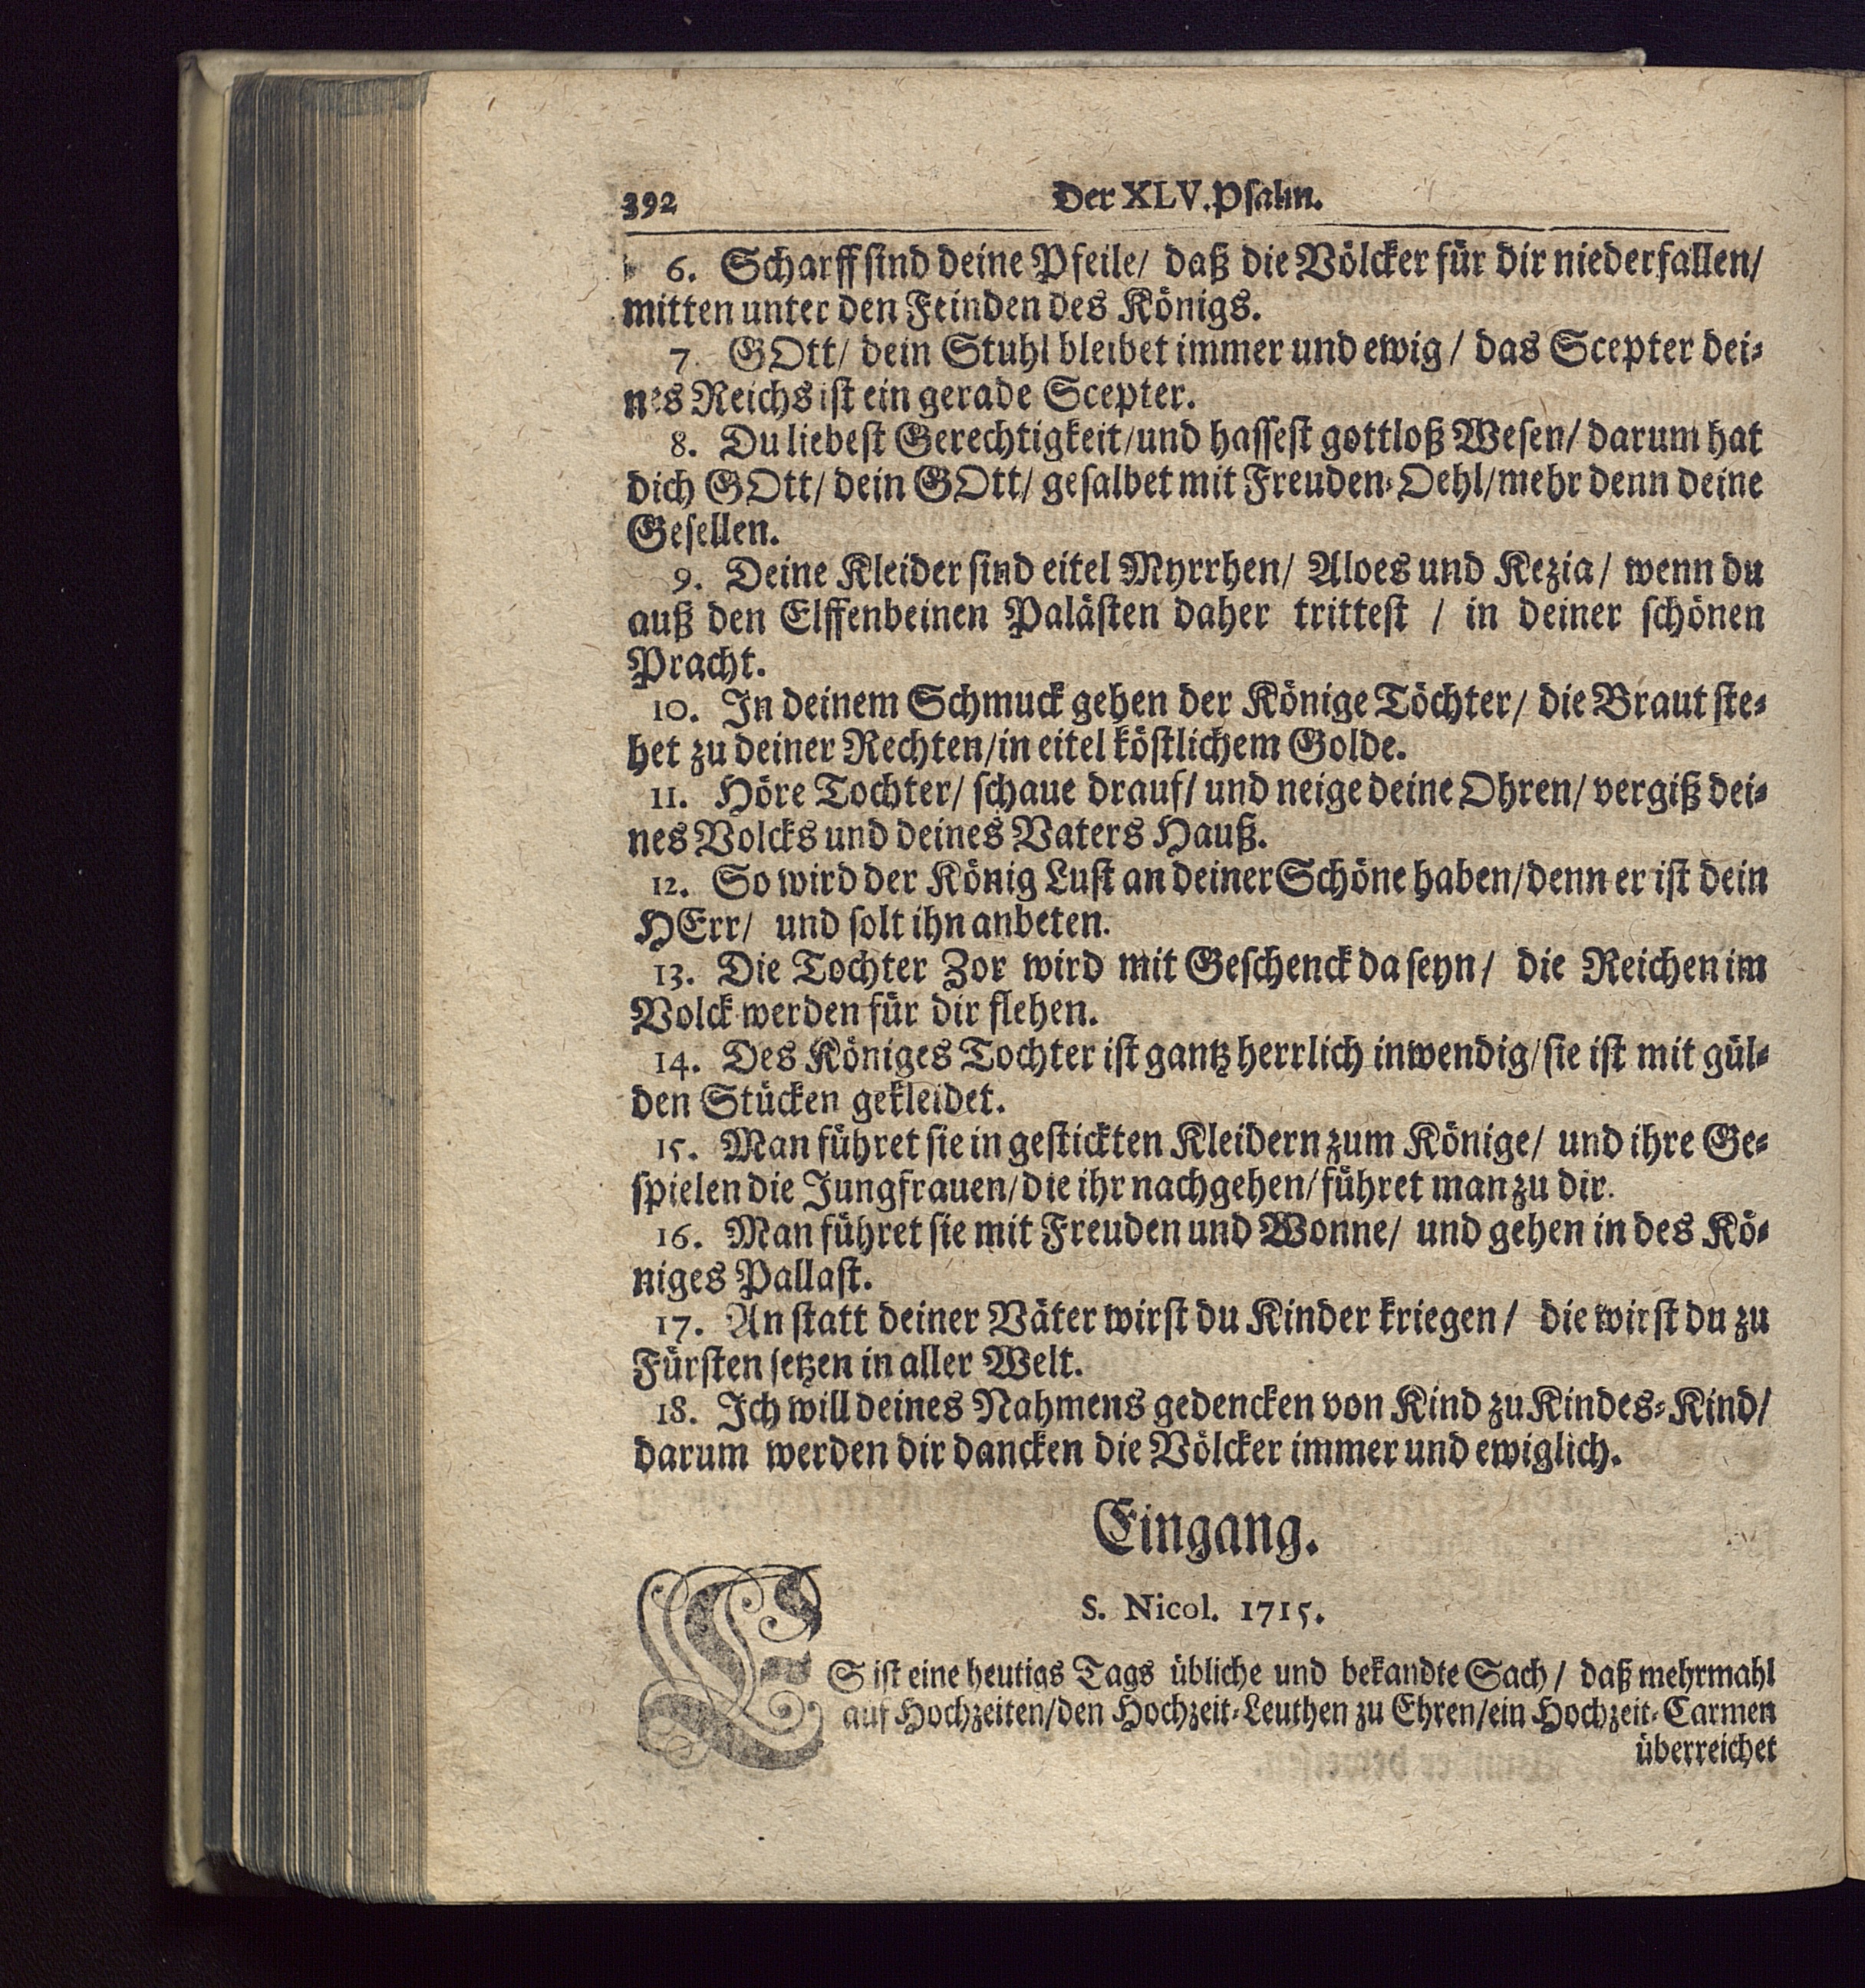 392 Der XLV. Psalm.
6. Scharff sind deine Pfeile/ daß die Völcker für dir niederfallen/
mitten unter den Feinden des Königs.
7. GOtt/ dein Stuhl bleibet immer und ewig/ das Scepter dei-
nes Reichs ist ein gerade Scepter.
8. Du liebest Gerechtigkeit/und hassest gottloß Wesen/ darum hat
dich GOtt/ dein GOtt/ gesalbet mit Freuden-Oehl/mehr denn deine
Gesellen.
9. Deine Kleider sind eitel Myrrhen/ Aloes und Kezia/ wenn du
auß den Elffenbeinen Palästen daher trittest / in deiner schönen
Pracht.
10. In deinem Schmuck gehen der Könige Töchter/ die Braut ste-
het zu deiner Rechten/in eitel köstlichem Golde.
11. Höre Tochter/ schaue drauf/ und neige deine Ohren/ vergiß dei-
nes Volcks und deines Vaters Hauß.
12. So wird der König Lust an deiner Schöne haben/denn er ist dein
HErr/ und solt ihn anbeten.
13. Die Tochter Zor wird mit Geschenck da seyn/ die Reichen im
Volck werden für dir flehen.
14. Des Königes Tochter ist gantz herrlich inwendig/sie ist mit gül-
den Stücken gekleidet.
15. Man führet sie in gestickten Kleidern zum Könige/ und ihre Ge-
spielen die Jungfrauen/die ihr nachgehen/führet man zu dir.
16. Man führet sie mit Freuden und Wonne/ und gehen in des Kö-
niges Pallast.
17. An statt deiner Väter wirst du Kinder kriegen/ die wirst du zu
Fürsten setzen in aller Welt.
18. Ich will deines Nahmens gedencken von Kind zu Kindes-Kind/
darum werden dir dancken die Völcker immer und ewiglich.
Eingang.
S. Nicol. 1715.
ES ist eine heutigs Tags übliche und bekandte Sach/ daß mehrmahl
auf Hochzeiten/den Hochzeit-Leuthen zu Ehren/ein Hochzeit-Carmen
überreichet